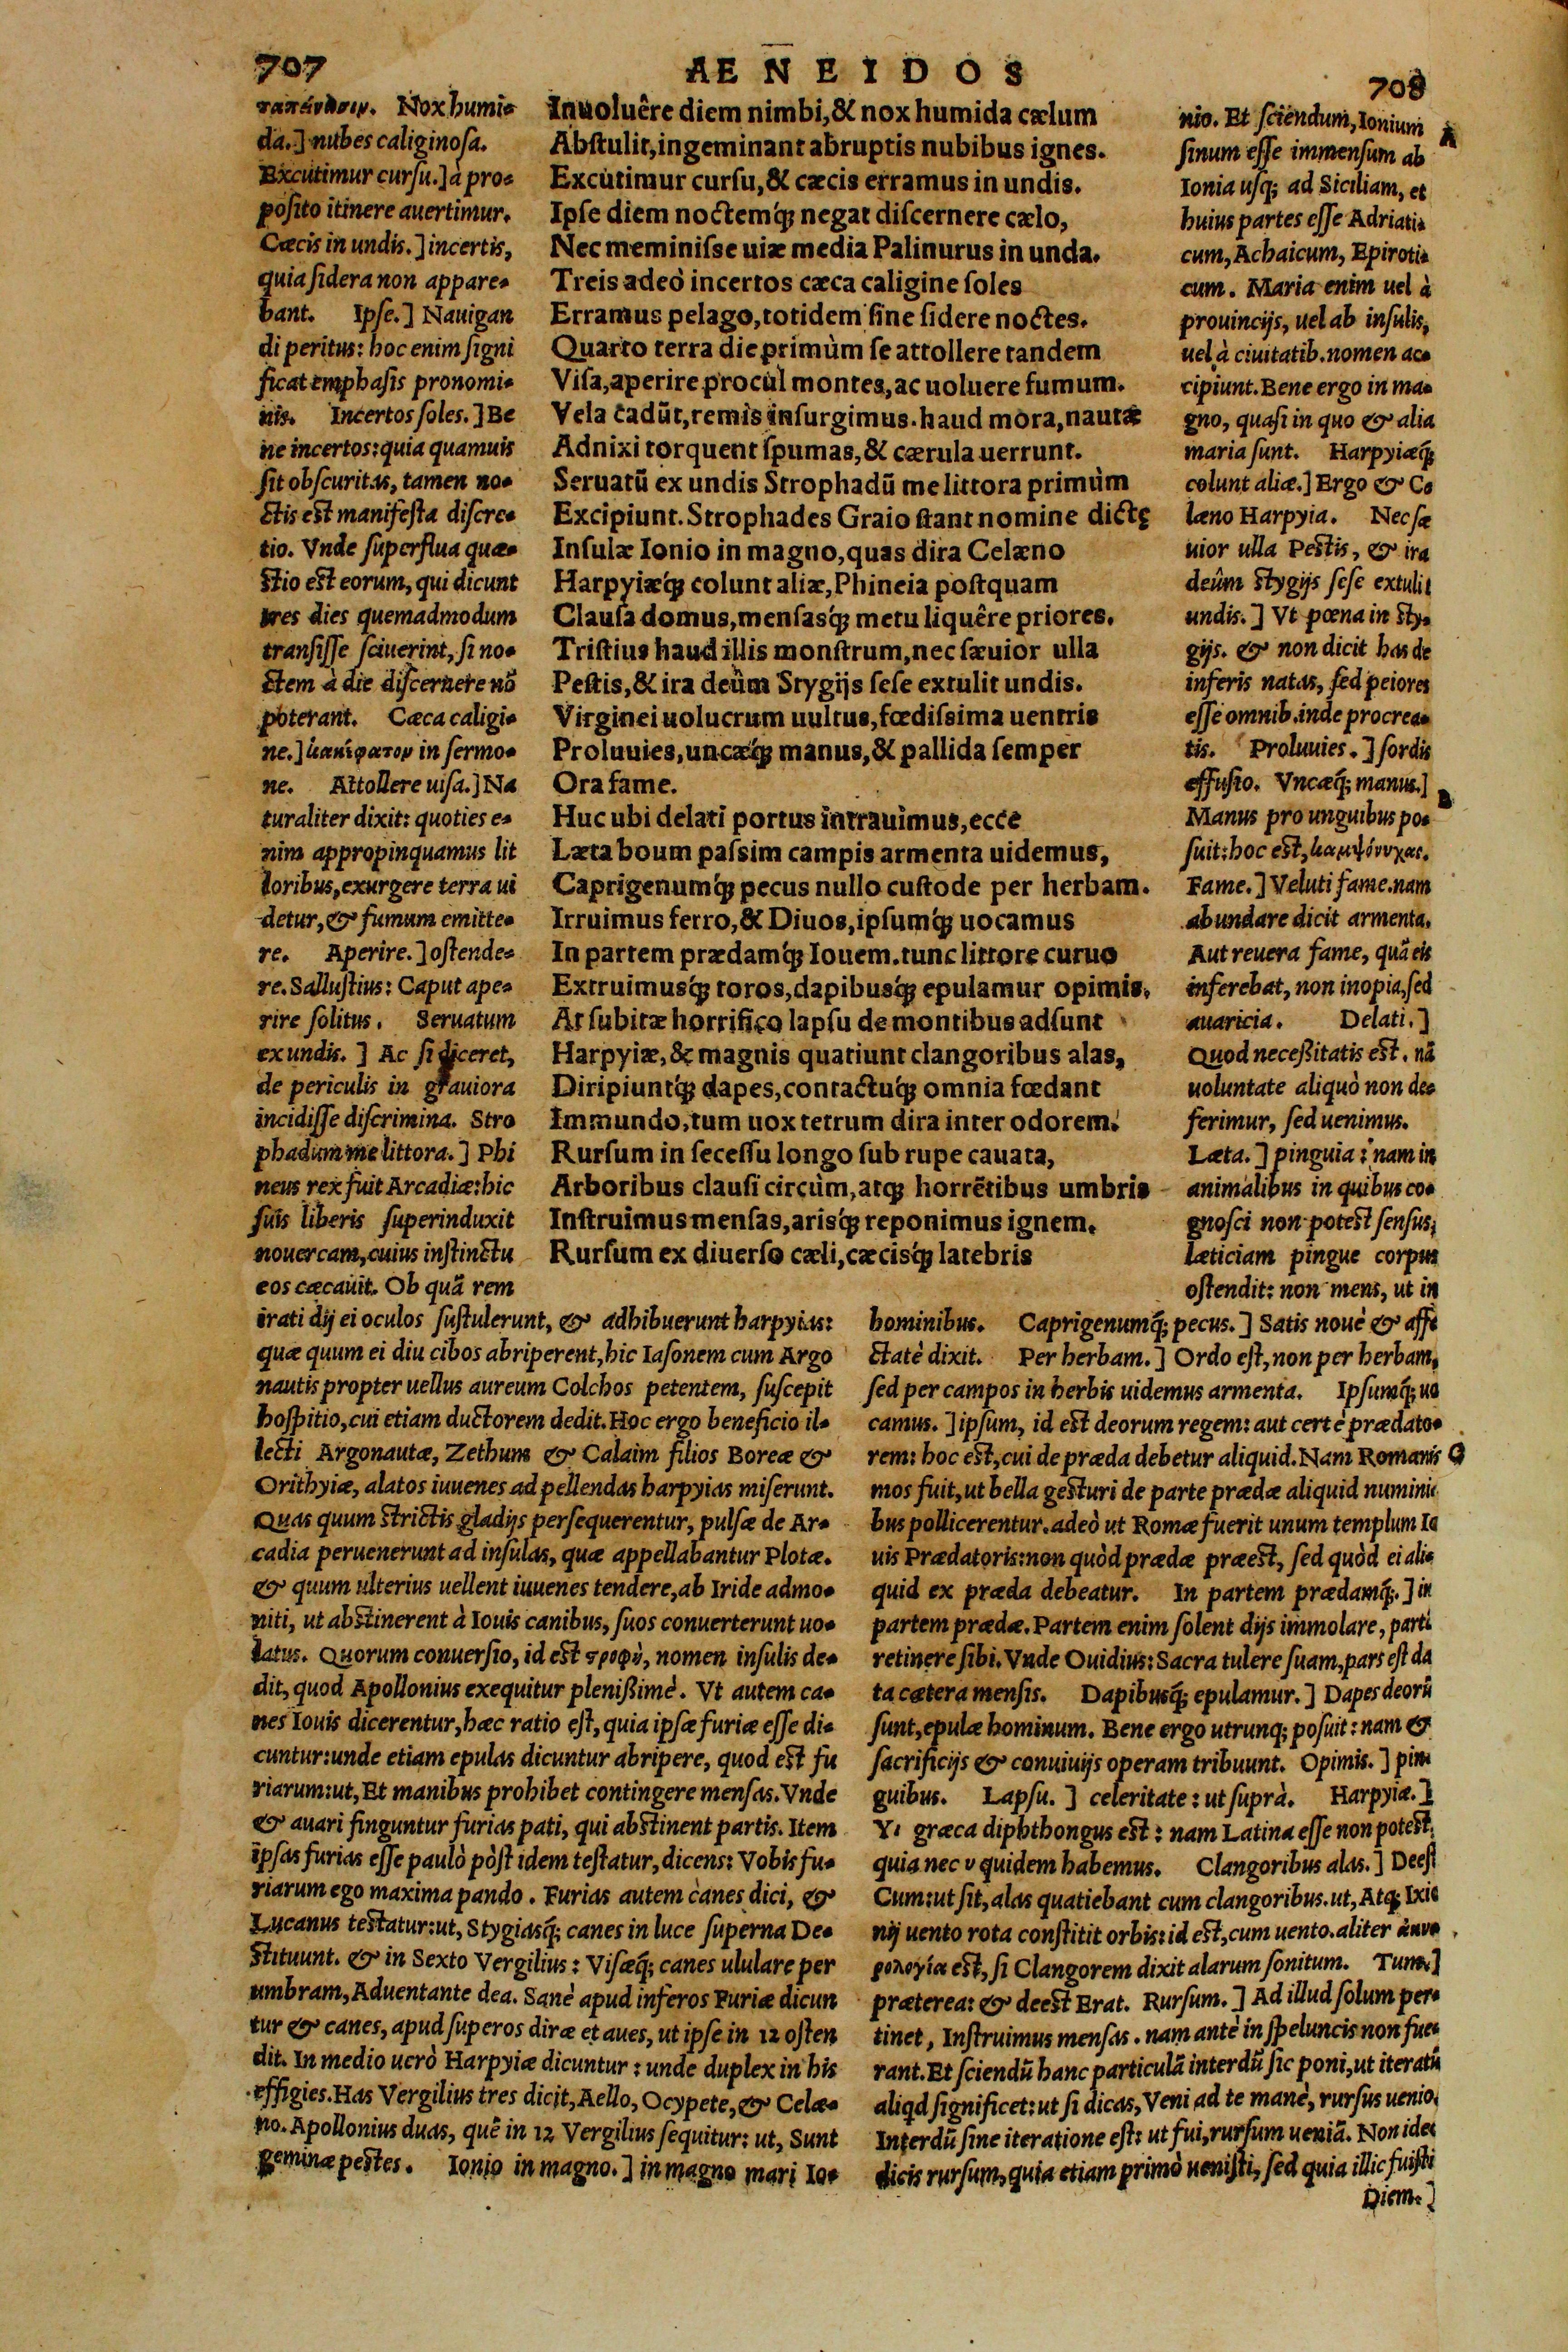 707
AENEIDOS
708
Inuoluêre diem nimbi,& nox humida cælum
Abstulit,ingeminant abruptis nubibus ignes.
Excutimur cursu,& cæcis erramus in undis.
Ipse diem noctemq́; negat discernere cælo,
Nec meminisse uiæ media Palinurus in unda.
Treis adeò incertos cæca caligine soles
Erramus pelago,totidem sine sidere noctes.
Quarto terra die primùm se attollere tandem
Visa,aperire procul montes,ac uoluere fumum.
Vela cadũt,remis insurgimus.haud mora,nautæ
Adnixi torquent spumas,& cærula uerrunt.
Seruatũ ex undis Strophadũ me littora primùm
Excipiunt.Strophades Graio stant nomine dictę
Insulæ Ionio in magno,quas dira Celæno
Harpyiæq́; colunt aliæ,Phineia postquam
Clausa domus,mensasq́; metu liquêre priores.
Tristius haud illis monstrum,nec sæuior ulla
Pestis,& ira deûm Stygijs sese extulit undis.
Virginei uolucrum uultus,fœdissima uentris
Proluuies,uncæq́; manus,& pallida semper
Ora fame.
Huc ubi delati portus intrauimus,ecce
Læta boum passim campis armenta uidemus,
Caprigenumq́; pecus nullo custode per herbam.
Irruimus ferro,& Diuos,ipsumq́; uocamus
In partem prædamq́; Iouem.tunc littore curuo
Extruimusq́; toros,dapibusq́; epulamur opimis.
At subitæ horrifico lapsu de montibus adsunt
Harpyiæ,& magnis quatiunt clangoribus alas,
Diripiuntq́; dapes,contactuq́; omnia fœdant
Immundo,tum uox tetrum dira inter odorem.
Rursum in secessu longo sub rupe cauata,
Arboribus clausi circùm,atq; horrẽtibus umbris
Instruimus mensas,arisq́; reponimus ignem.
Rursum ex diuerso cæli,cæcisq́; latebris
Nox humi-
da.] nubes caliginosa.
Excutimur cursu.] à pro-
posito itinere auertimur.
Cæcis in undis.] incertis,
quia sidera non appare-
bant. Ipse.] Nauigan
di peritus: hoc enim signi
ficat emphasis pronomi-
nis. Incertos soles.] Be
ne incertos: quia quamuis
sit obscuritas, tamen no-
ctis est manifesta discre-
tio. Vnde superflua quæ-
stio est eorum, qui dicunt
tres dies quemadmodum
transisse sciuerint, si no-
ctem à die discernere nõ
poterant. Cæca caligi-
ne.] κακέφατον in sermo-
ne. Attollere uisa.] Na
turaliter dixit: quoties e-
nim appropinquamus lit
toribus, exurgere terra ui
detur, & fumum emitte-
re. Aperire.] ostende-
re. Sallustius: Caput ape-
rire solitus. Seruatum
ex undis.] Ac si diceret,
de periculis in grauiora
incidisse discrimina. Stro
phadum me littora.] Phi
neus rex fuit Arcadiæ: hic
suis liberis superinduxit
nouercam, cuius instinctu
eos cæcauit. Ob quã rem
irati dij ei oculos sustulerunt, & adhibuerunt harpyias:
quæ quum ei diu cibos abriperent, hic Iasonem cum Argo
nautis propter uellus aureum Colchos petentem, suscepit
hospitio, cui etiam ductorem dedit. Hoc ergo beneficio il-
lecti Argonautæ, Zethum & Calaim filios Boreæ &
Orithyiæ, alatos iuuenes ad pellendas harpyias miserunt.
Quas quum strictis gladijs persequerentur, pulsæ de Ar-
cadia peruenerunt ad insulas, quæ appellabantur Plotæ.
& quum ulterius uellent iuuenes tendere, ab Iride admo-
niti, ut abstinerent à Iouis canibus, suos conuerterunt uo-
latus. Quorum conuersio, id est στροφὴ, nomen insulis de-
dit, quod Apollonius exequitur plenißimè. Vt autem ca-
nes Iouis dicerentur, hæc ratio est, quia ipsæ furiæ esse di-
cuntur: unde etiam epulas dicuntur abripere, quod est fu
riarum: ut, Et manibus prohibet contingere mensas. Vnde
& auari finguntur furias pati, qui abstinent partis. Item
ipsas furias esse paulò pòst idem testatur, dicens: Vobis fu-
riarum ego maxima pando. Furias autem canes dici, &
Lucanus testatur: ut, Stygiasq́; canes in luce superna De-
stituunt. & in Sexto Vergilius: Visæq́; canes ululare per
umbram, Aduentante dea. Sanè apud inferos Furiæ dicun
tur & canes, apud superos diræ et aues, ut ipse in 12 osten
dit. In medio uerò Harpyiæ dicuntur: unde duplex in his
effigies. Has Vergilius tres dicit, Aello, Ocypete, & Celæ-
no. Apollonius duas, quẽ in 12 Vergilius sequitur: ut, Sunt
geminæ pestes. Ionio in magno.] in magno mari Io-
nio. Et sciendum, Ionium
A
sinum esse immensum ab
Ionia usq; ad Siciliam, et
huius partes esse Adriati-
cum, Achaicum, Epiroti-
cum. Maria enim uel à
prouincijs, uel ab insulis,
uel à ciuitatib. nomen ac-
cipiunt. Bene ergo in ma-
gno, quasi in quo & alia
maria sunt. Harpyiæq́;
colunt aliæ.] Ergo & Ce
læno Harpyia. Nec sæ
uior ulla Pestis, & ira
deûm stygijs sese extulit
undis.] Vt pœna in sty-
gijs. & non dicit has de
inferis natas, sed peiores
esse omnib. inde procrea-
tis. Proluuies.] sordis
effusio. Vncæq́; manus.]
B
Manus pro unguibus po-
suit: hoc est, καμψόνυχας.
Fame.] Veluti fame. nam
abundare dicit armenta.
Aut reuera fame, quã eis
inferebat, non inopia, sed
auaricia. Delati.]
Quod neceßitatis est. nã
uoluntate aliquò non de-
ferimur, sed uenimus.
Læta.] pinguia: nam in
animalibus in quibus co-
gnosci non potest sensus,
læticiam pingue corpus
ostendit: non mens, ut in
hominibus. Caprigenumq́; pecus.] Satis nouè & affe
ctatè dixit. Per herbam.] Ordo est, non per herbam,
sed per campos in herbis uidemus armenta. Ipsumq́; uo
camus.] ipsum, id est deorum regem: aut certè prædato-
rem: hoc est, cui de præda debetur aliquid. Nam Romanis
C
mos fuit, ut bella gesturi de parte prædæ aliquid numini-
bus pollicerentur. adeò ut Romæ fuerit unum templum Io
uis Prædatoris: non quòd prædæ præest, sed quòd ei ali-
quid ex præda debeatur. In partem prædamq́;.] in
partem prædæ. Partem enim solent dijs immolare, parti
retinere sibi. Vnde Ouidius: Sacra tulere suam, pars est da
ta cætera mensis. Dapibusq́; epulamur.] Dapes deorũ
sunt, epulæ hominum. Bene ergo utrunq; posuit: nam &
sacrificijs & conuiuijs operam tribuunt. Opimis.] pin-
guibus. Lapsu.] celeritate: ut suprà. Harpyiæ.]
Yι græca diphthongus est: nam Latina esse non potest,
quia nec υ quidem habemus. Clangoribus alas.] Deest
Cum: ut sit, alas quatiebant cum clangoribus. ut, Atq; Ixio
nij uento rota constitit orbis: id est, cum uento. aliter ἀκυ-
ρολογία est, si Clangorem dixit alarum sonitum. Tum.]
præterea: & deest Erat. Rursum.] Ad illud solum per-
tinet, Instruimus mensas. nam antè in speluncis non fue-
rant. Et sciendũ hanc particulã interdũ sic poni, ut iteratũ
aliqd significet: ut si dicas, Veni ad te manè, rursus uenio.
Interdũ sine iteratione est: ut fui, rursum ueniã. Non ideo
dicis rursum, quia etiam primò uenisti, sed quia illic fuisti
Diem.]